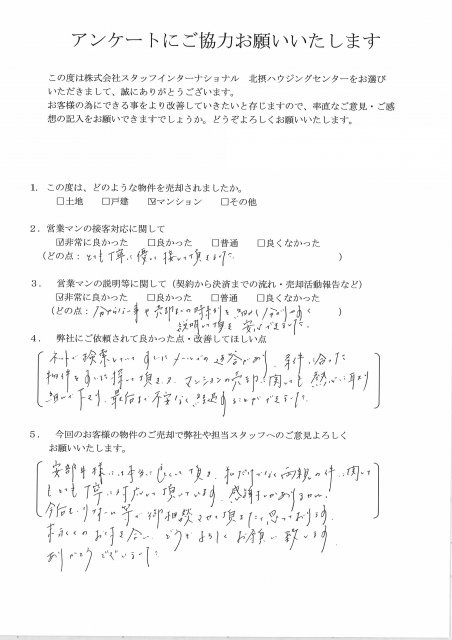 アンケートにご協力お願いいたします
この度は株式会社スタッフインターナショナル 北摂ハウジングセンターをお選び
いただきまして、誠にありがとうございます。
お客様の為にできる事をより改善していきたいと存じますので、率直なご意見・ご感
想の記入をお願いできますでしょうか。どうぞよろしくお願いいたします。
1. この度は、どのような物件を売却されましたか。
□土地 □戸建 ☑マンション □その他
2. 営業マンの接客対応に関して
☑非常に良かった □良かった □普通 □良くなかった
(どの点:とても丁寧に優しく接して頂きました。 )
3. 営業マンの説明等に関して(契約から決済までの流れ・売却活動報告など)
☑非常に良かった □良かった □普通 □良くなかった
(どの点:分からない事や売却までの時系列を細かく分かりやすく )
説明して頂き安心できました。
4. 弊社にご依頼されて良かった点・改善してほしい点
ネットで検索していてすぐにメールでの連絡があり、条件に合った
物件をすぐに探して頂き、マンションの売却に関しても熱心に取り
組んで下さり、最後まで不安なく経過することができました。
5. 今回のお客様の物件のご売却で弊社や担当スタッフへのご意見よろしく
お願いいたします。
安部井様には本当に良くして頂き、私だけでなく両親の件に関して
もとても丁寧に対応して頂いています。感謝しかありません。
今後もリフォーム等で御相談させて頂きたいと思っております。
末永くのお付き合い、どうぞよろしくお願い致します。
ありがとうございました。